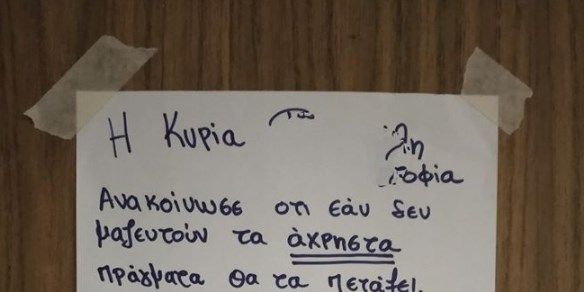 Η Κυρία
Ανακοίνωσε οτι εάν δεν
μαζευτούν τα άχρηστα
πράγματα θα τα πετάξει.